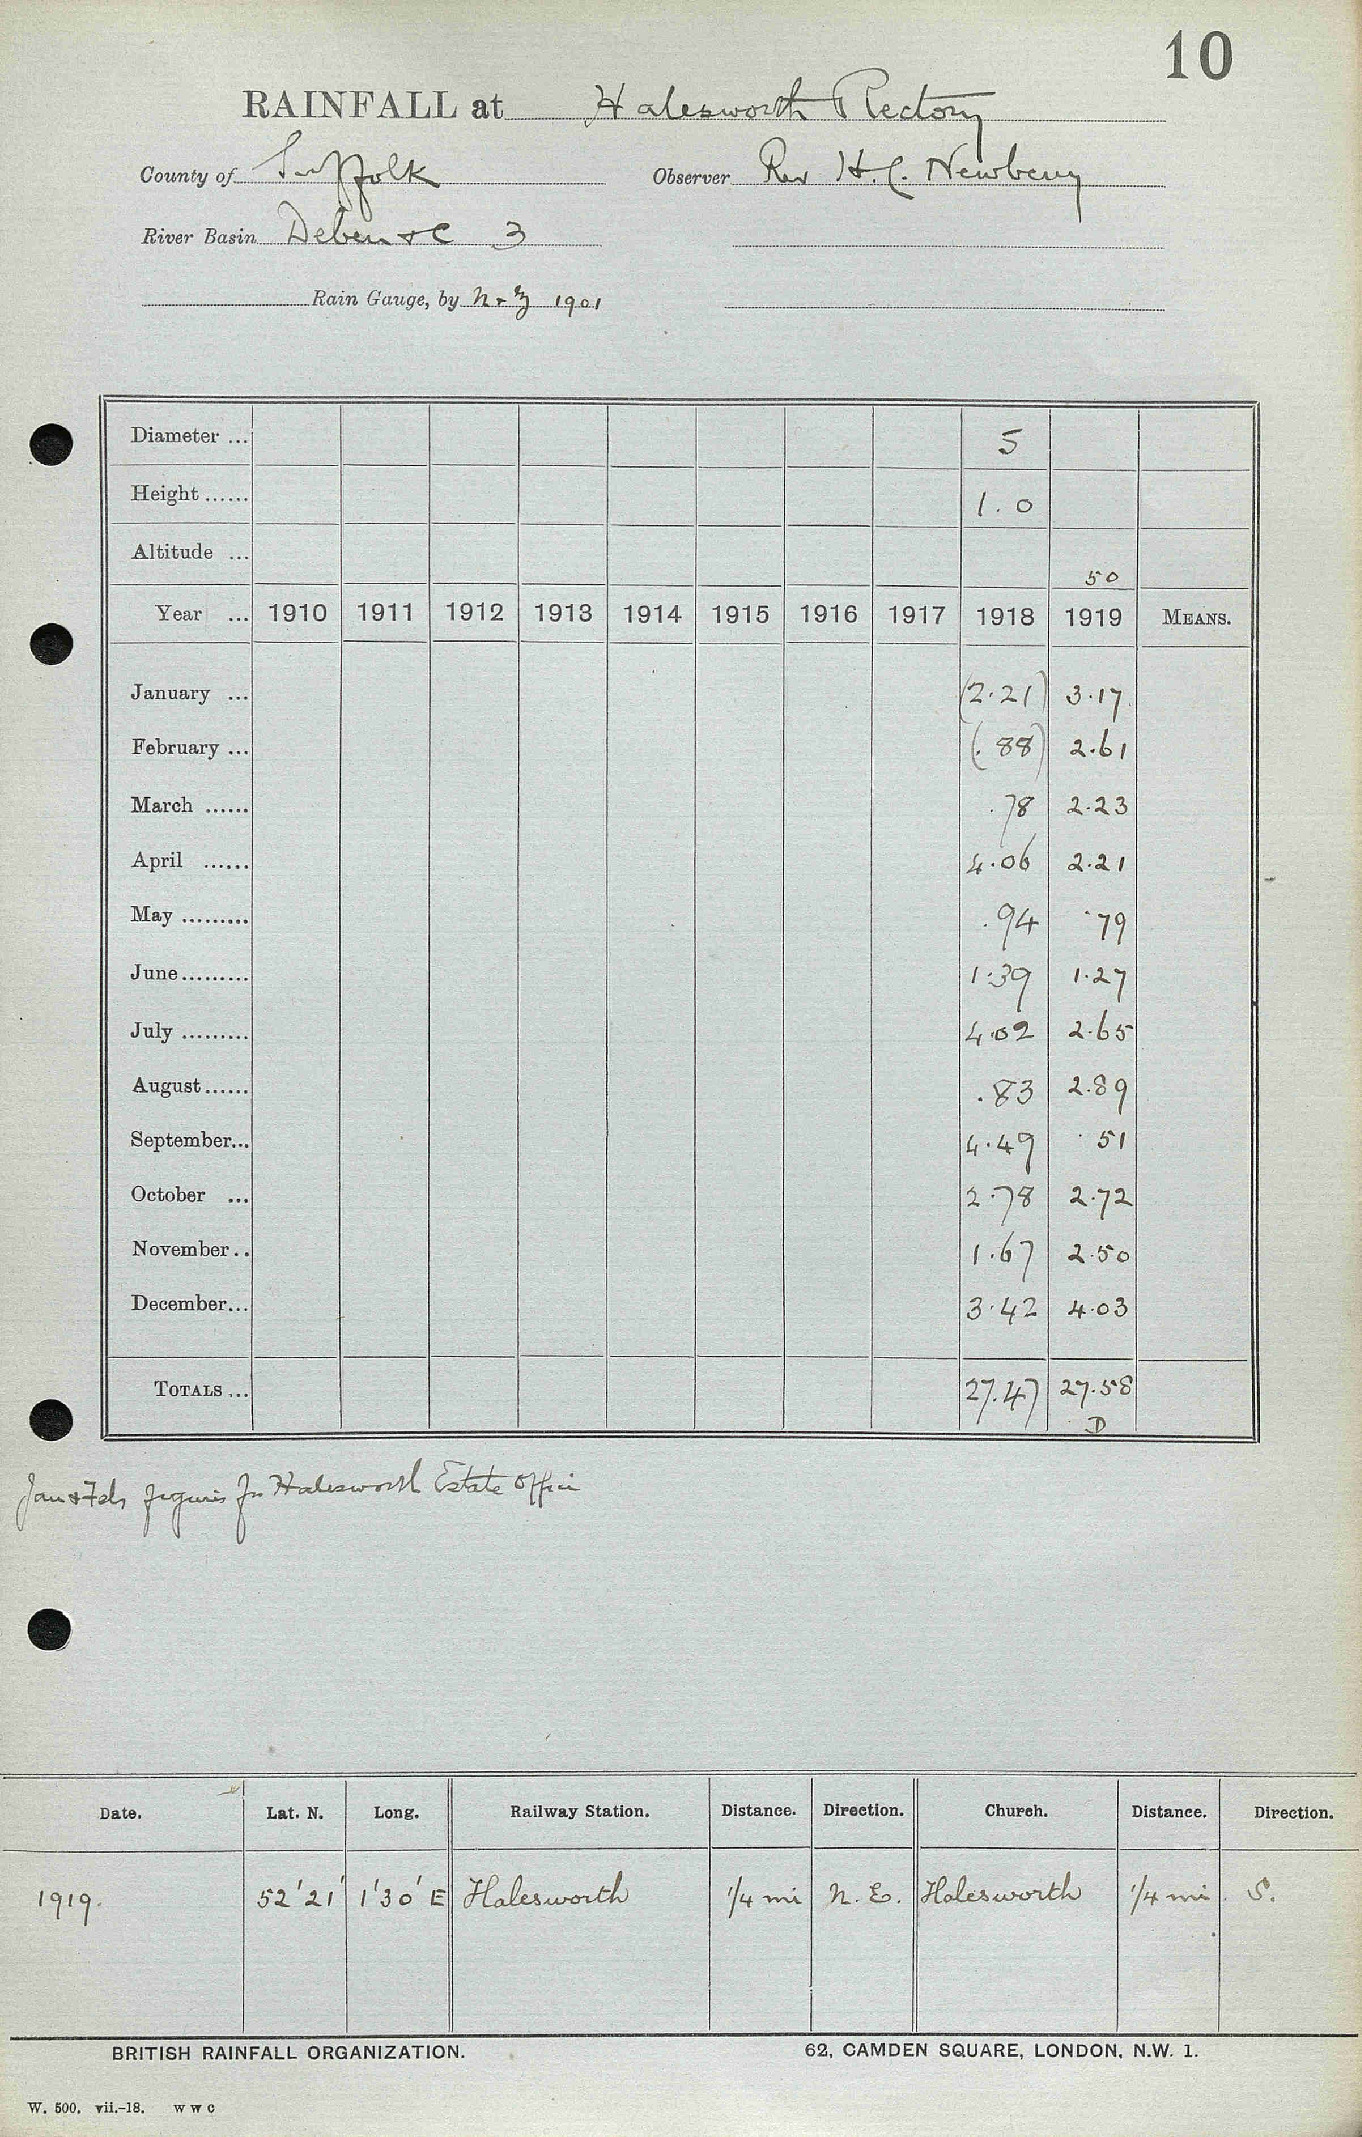 10
RAINFALL at Halesworth Rectory
County of Suffolk Observer Rev H. C. Newbery
River Basin Deben &c 3
Rain Gauge, by N & Z 1901
Diameter ... 5
Height ...... 1.0
Altitude ... 50
Year ... 1910 1911 1912 1913 1914 1915 1916 1917 1918 1919 MEANS.
January ... (2.21) 3.17
February ... (.88) 2.61
March ...... .78 2.23
April ...... 4.06 2.21
May ......... .94 .79
June ......... 1.39 1.27
July ......... 4.02 2.65
August ...... .83 2.89
September... 4.49 .51
October ... 2.78 2.72
November .. 1.67 2.50
December... 3.42 4.03
TOTALS ... 27.47 27.58
D
Jan & Feb figures fr Halesworth Estate Office
Date. Lat. N. Long. Railway Station. Distance. Direction. Church. Distance. Direction.
1919. 52°21' 1°30' E Halesworth 1/4 mi N. E. Halesworth 1/4 mi. S.
BRITISH RAINFALL ORGANIZATION. 62, CAMDEN SQUARE, LONDON, N.W. 1.
W. 500. vii.-18. W W C